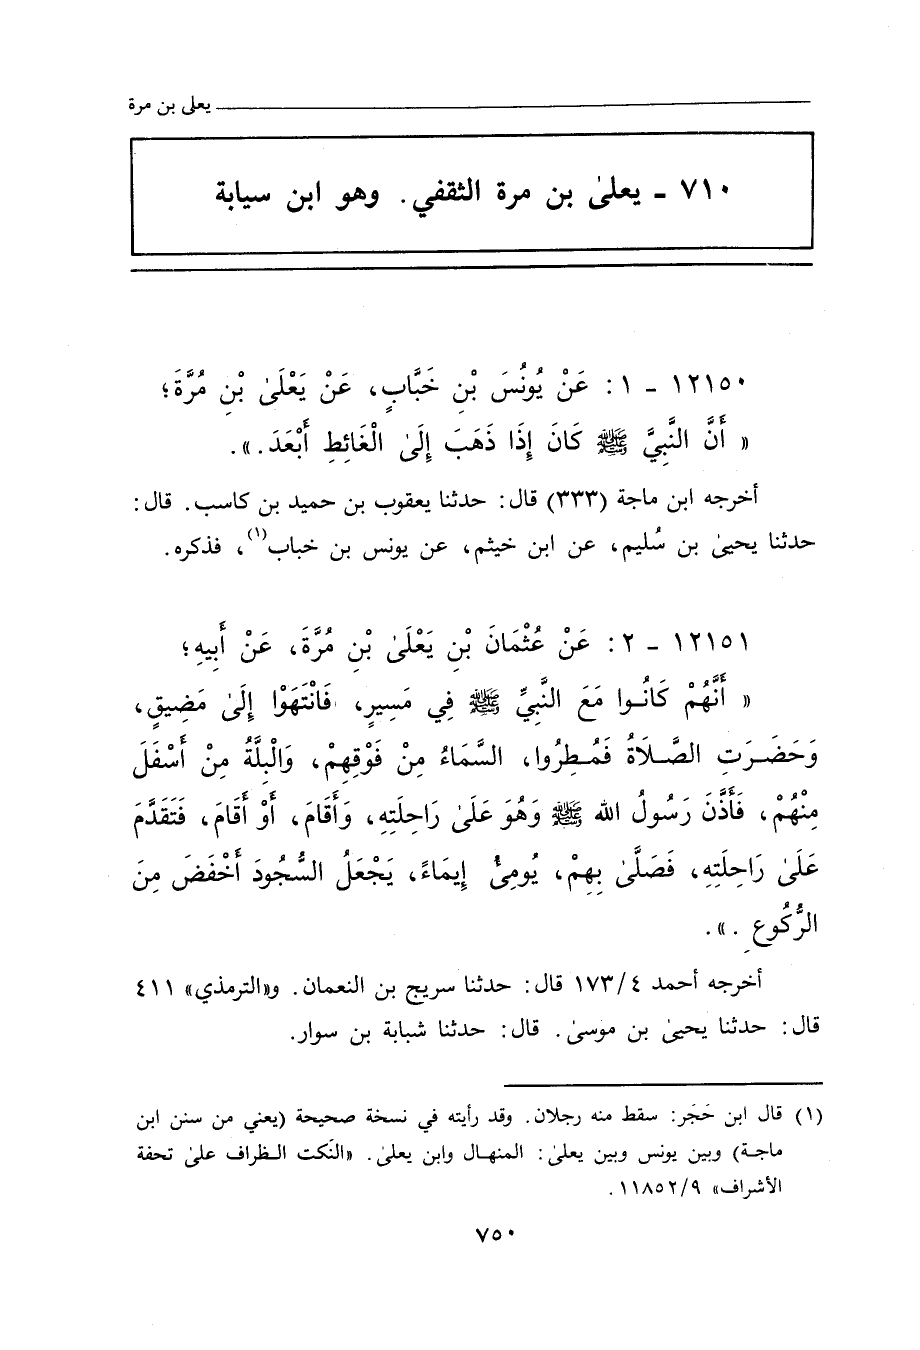 يعلى بن مرة
٧١٠ ـ يعلىٰ بن مرة الثقفي. وهو ابن سيابة
١٢١٥٠ ـ ١: عَنْ يُونُسَ بْنِ خَبَّابٍ، عَنْ يَعْلَىٰ بْنِ مُرَّةَ؛
« أَنَّ النَّبِيَّ ﷺ كَانَ إِذَا ذَهَبَ إِلَىٰ الْغَائِطِ أَبْعَدَ.».
أخرجه ابن ماجة (٣٣٣) قال: حدثنا يعقوب بن حميد بن كاسب. قال:
حدثنا يحيىٰ بن سُليم، عن ابن خيثم، عن يونس بن خباب(١)، فذكره.
١٢١٥١ ـ ٢: عَنْ عُثْمَانَ بْنِ يَعْلَىٰ بْنِ مُرَّةَ، عَنْ أَبِيهِ؛
« أَنَّهُمْ كَانُوا مَعَ النَّبِيِّ ﷺ فِي مَسِيرٍ، فَانْتَهَوْا إِلَىٰ مَضِيقٍ،
وَحَضَرَتِ الصَّلَاةُ فَمُطِرُوا، السَّمَاءُ مِنْ فَوْقِهِمْ، وَالْبِلَّةُ مِنْ أَسْفَلَ
مِنْهُمْ، فَأَذَّنَ رَسُولُ الله ﷺ وَهُوَ عَلَىٰ رَاحِلَتِهِ، وَأَقَامَ، أَوْ أَقَامَ، فَتَقَدَّمَ
عَلَىٰ رَاحِلَتِهِ، فَصَلَّىٰ بِهِمْ، يُومِئُ إِيمَاءً، يَجْعَلُ السُّجُودَ أَخْفَضَ مِنَ
الرُّكُوعِ .».
أخرجه أحمد ٤/١٧٣ قال: حدثنا سريج بن النعمان. و«الترمذي» ٤١١
قال: حدثنا يحيىٰ بن موسىٰ. قال: حدثنا شبابة بن سوار.
(١) قال ابن حَجَر: سقط منه رجلان. وقد رأيته في نسخة صحيحة (يعني من سنن ابن
ماجة) وبين يونس وبين يعلىٰ: المنهال وابن يعلىٰ. «النكت الظراف علىٰ تحفة
الأشراف» ٩/١١٨٥٢.
٧٥٠